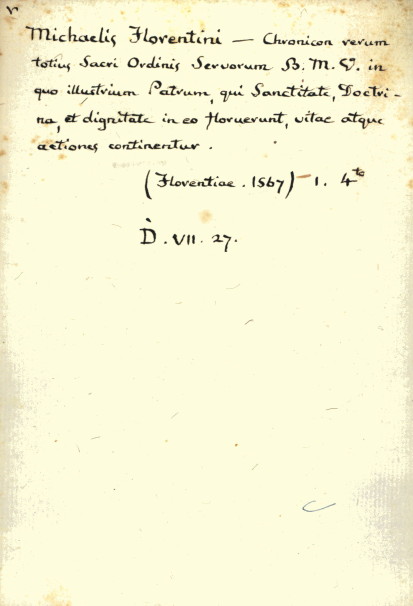 v
Michaelis Florentini — Chronicon rerum
totius Sacri Ordinis Servorum B. M. V. in
quo illustrium Patrum, qui Sanctitate, Doctri-
na, et dignitate in eo floruerunt, vitae atque
actiones continentur.
(Florentiae. 1567) — 1. 4to
D. VII. 27.